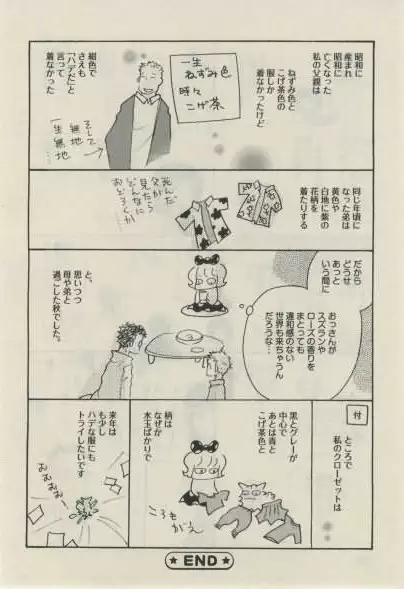 昭和に
産まれ
昭和に
亡くなった
私の父親は
ねずみ色と
こげ茶色の
服しか
着なかったけど
一生
ねずみ色
時々
こげ茶
紺色で
さえも
「ハデだ」と
言って
着なかった
そして
無地…
一生無地…
同じ年頃に
なった弟は
黄色や
白地に紫の
花柄を
着たりする
死んだ
父が
見たら
どんなに
おどろくか…
だから
どうせ
あっと
いう間に
おっさんが
スズランや
ローズの香りを
まとっても
違和感のない
世界も来ちゃうん
だろうな…
と、
思いつつ
母や弟と
過ごした秋でした。
付
ところで
私のクローゼットは
黒とグレーが
中心で
あとは青と
こげ茶色と
柄は
なぜか
水玉ばかりで
ころも
がえ
来年は
も少し
ハデな服にも
トライしたいです
むむむむ…
★ END ★